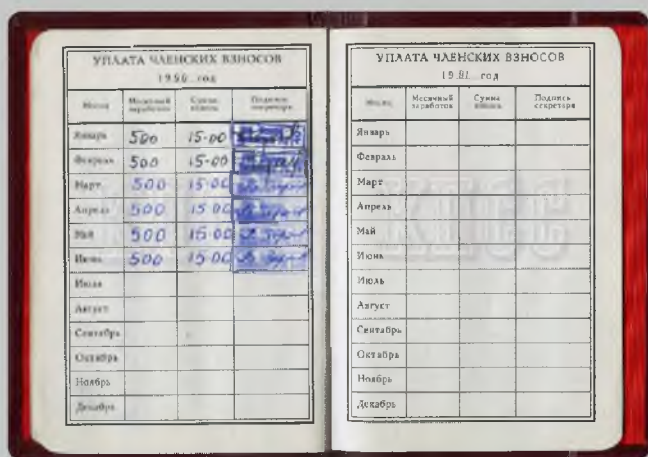 УПЛАТА ЧЛЕНСКИХ ВЗНОСОВ
1990 год
Месяц Месячный заработок Сумма взноса Подпись секретаря
Январь 500 15-00
Февраль 500 15-00
Март 500 15-00
Апрель 500 15-00
Май 500 15-00
Июнь 500 15-00
Июль
Август
Сентябрь
Октябрь
Ноябрь
Декабрь
УПЛАТА ЧЛЕНСКИХ ВЗНОСОВ
1991 год
Месяц Месячный заработок Сумма взноса Подпись секретаря
Январь
Февраль
Март
Апрель
Май
Июнь
Июль
Август
Сентябрь
Октябрь
Ноябрь
Декабрь